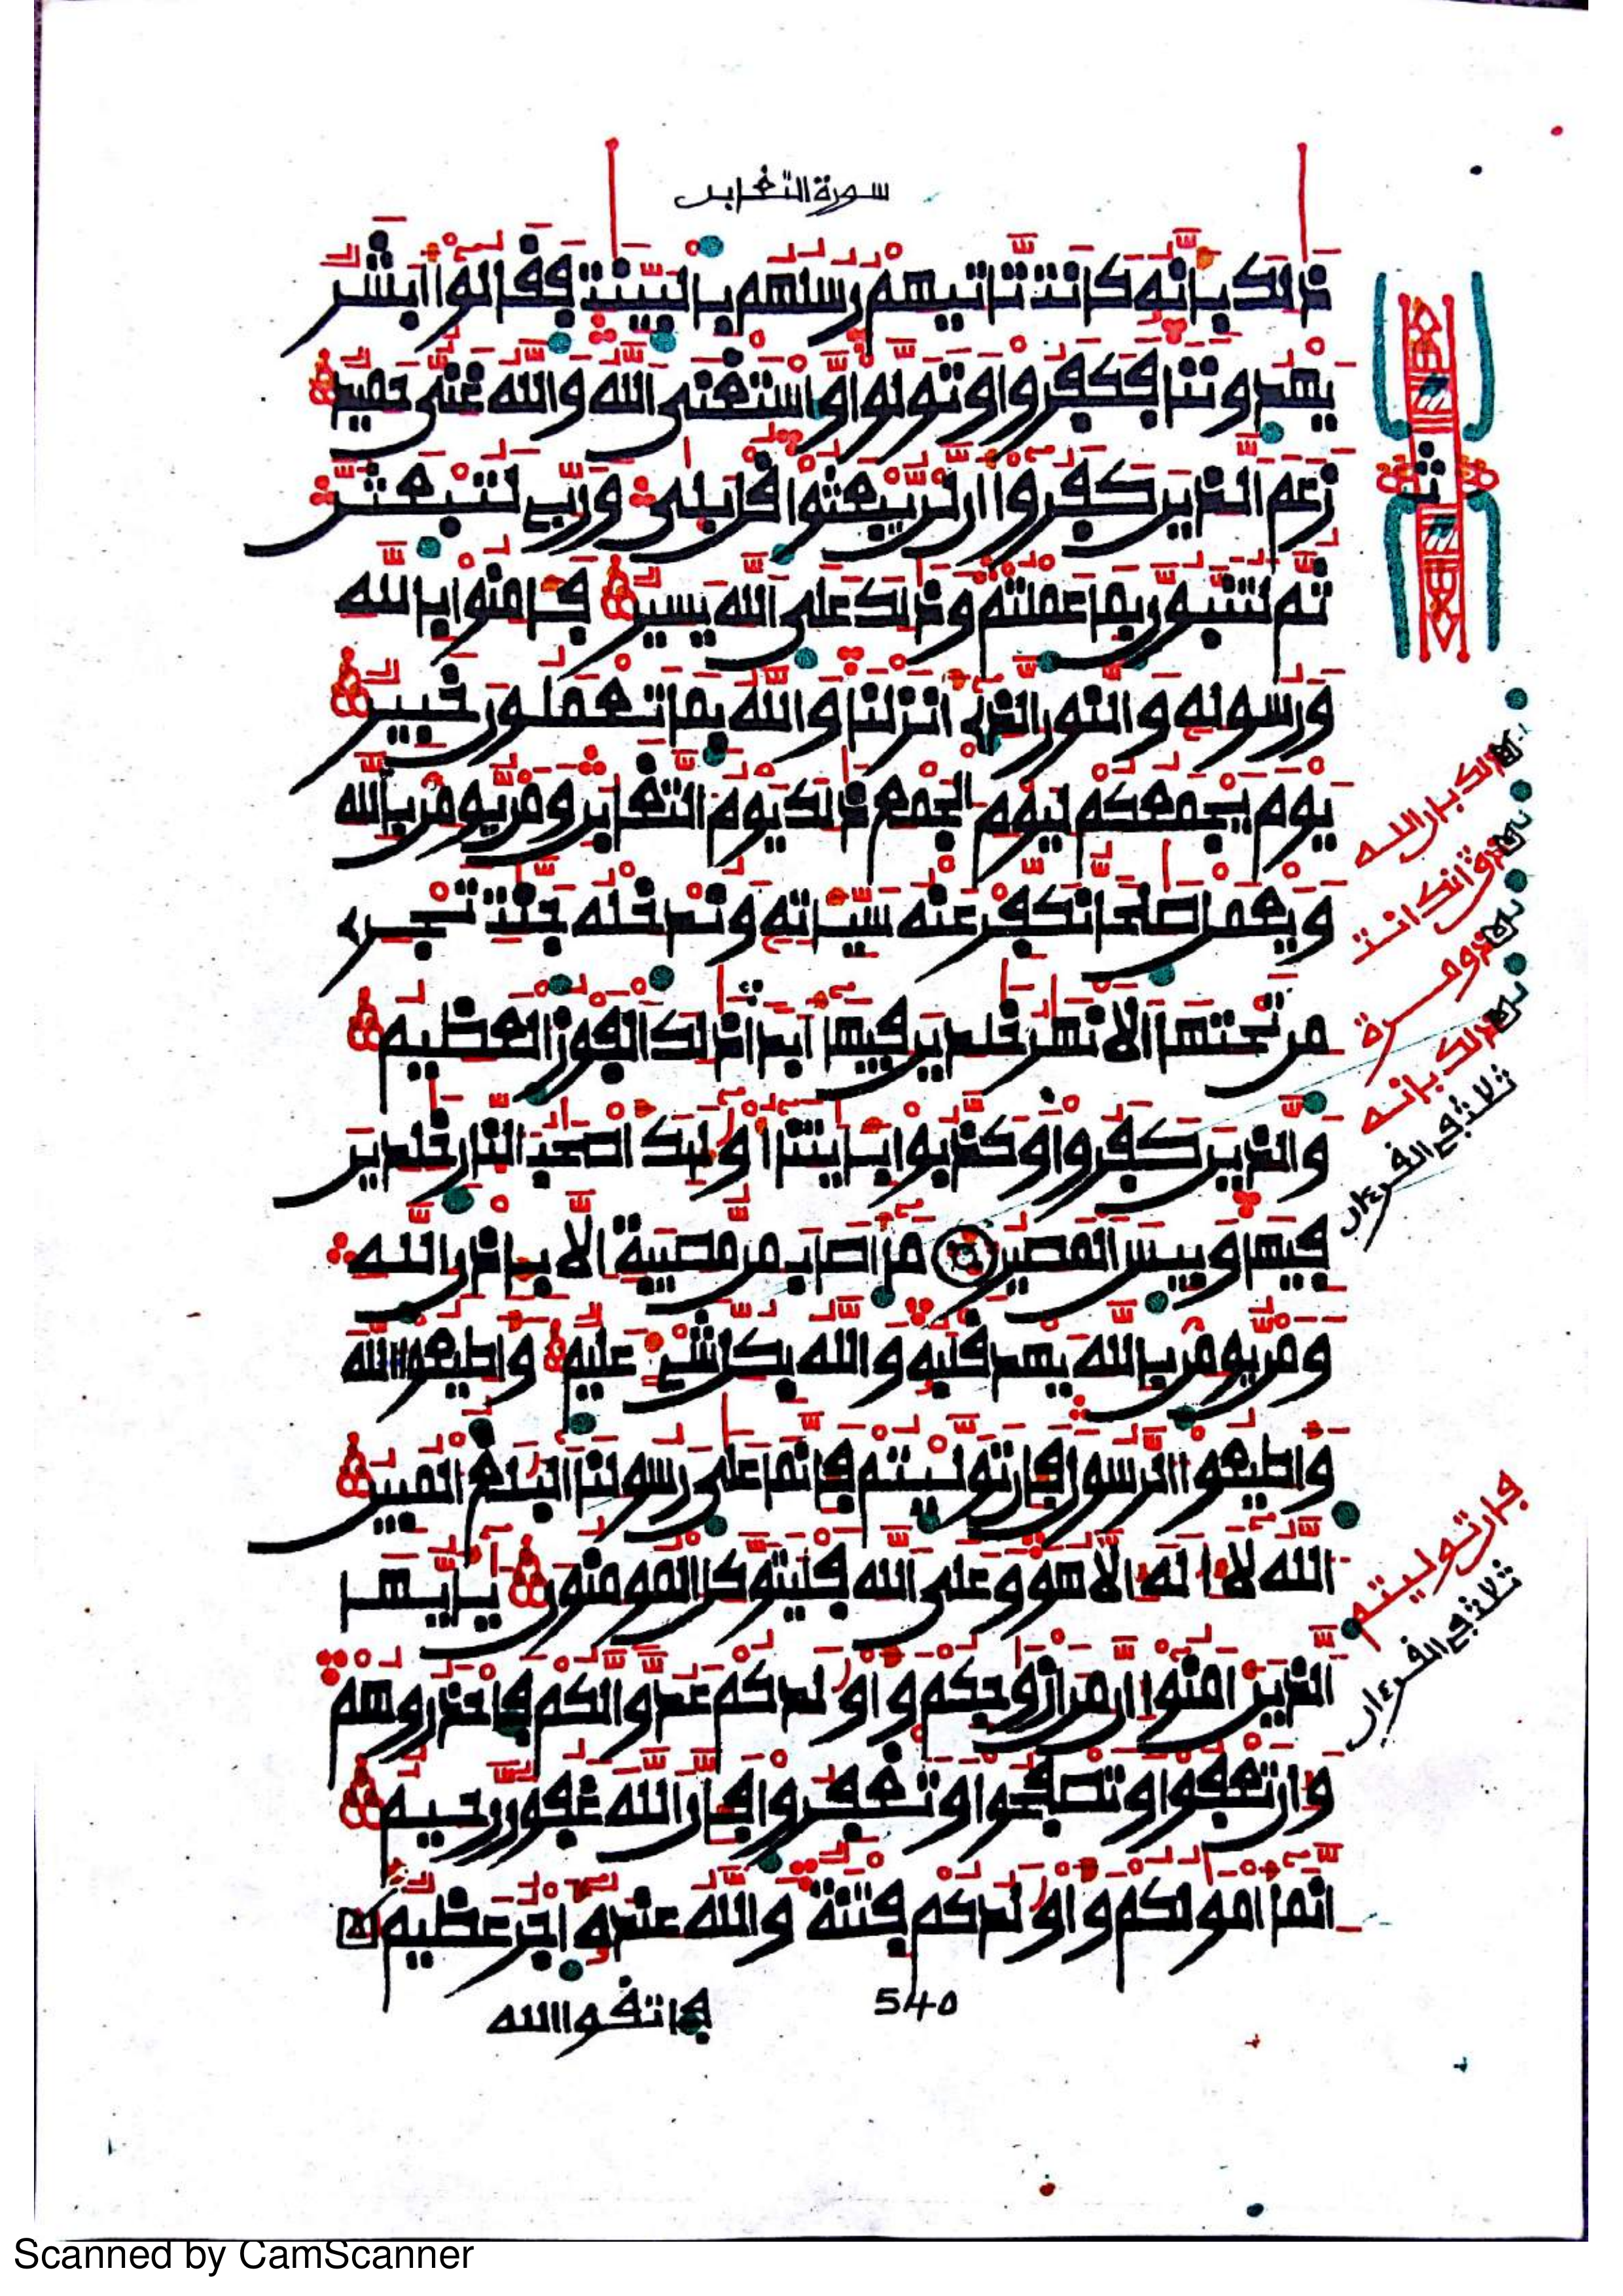 سورة التغابن
ذلك بانه كانت تاتيهم رسلهم بالبينت فقالوا ابشر
يهدوننا فكفروا وتولوا واستغنى الله والله غني حميد
زعم الذين كفروا ان لن يبعثوا قل بلى وربي لتبعثن
ثم لتنبون بما عملتم وذلك على الله يسير فامنوا بالله
ورسوله والنور الذي انزلنا والله بما تعملون خبير
يوم يجمعكم ليوم الجمع ذلك يوم التغابن ومن يومن بالله
ويعمل صلحا نكفر عنه سيئاته وندخله جنت تجري
من تحتها الانهر خلدين فيها ابدا ذلك الفوز العظيم
والذين كفروا وكذبوا بايتنا اوليك اصحب النار خلدين
فيها وبيس المصير ما اصاب من مصيبة الا باذن الله
ومن يومن بالله يهد قلبه والله بكل شيء عليم واطيعوا الله
واطيعوا الرسول فان توليتم فانما على رسولنا البلغ المبين
الله لا اله الا هو وعلى الله فليتوكل المومنون يايها
الذين امنوا ان من ازوجكم واولدكم عدوا لكم فاحذروهم
وان تعفوا وتصفحوا وتغفروا فان الله غفور رحيم
انما امولكم واولدكم فتنة والله عنده اجر عظيم
فاتقوا الله
540
ثمن
ذلك بان الله
انه كانت
ومرة
ذلك بانه
ثلاث في القرءان
فان توليتم
ثلاث في القرءان
Scanned by CamScanner